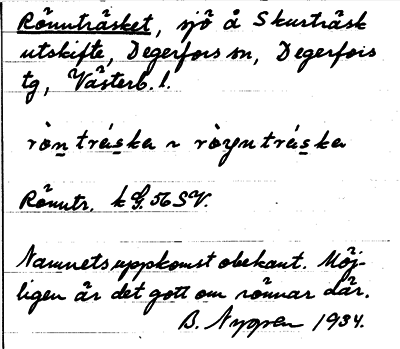 Rönnträsket, sjö å Skurträsk
utskifte, Degerfors sn, Degerfors
tg, Västerb. l.
Rönntr. k 56 SV.
Namnets uppkomst obekant. Möj-
ligen är det gott om rönnar där.
B. Nygren 1934.